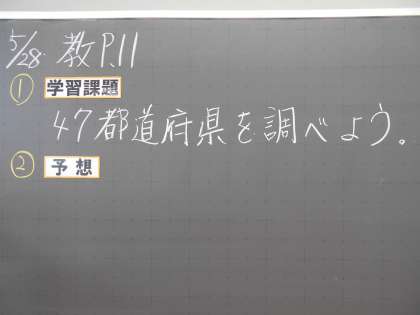 5/28 教P.11
① 学習課題
47都道府県を調べよう。
② 予想